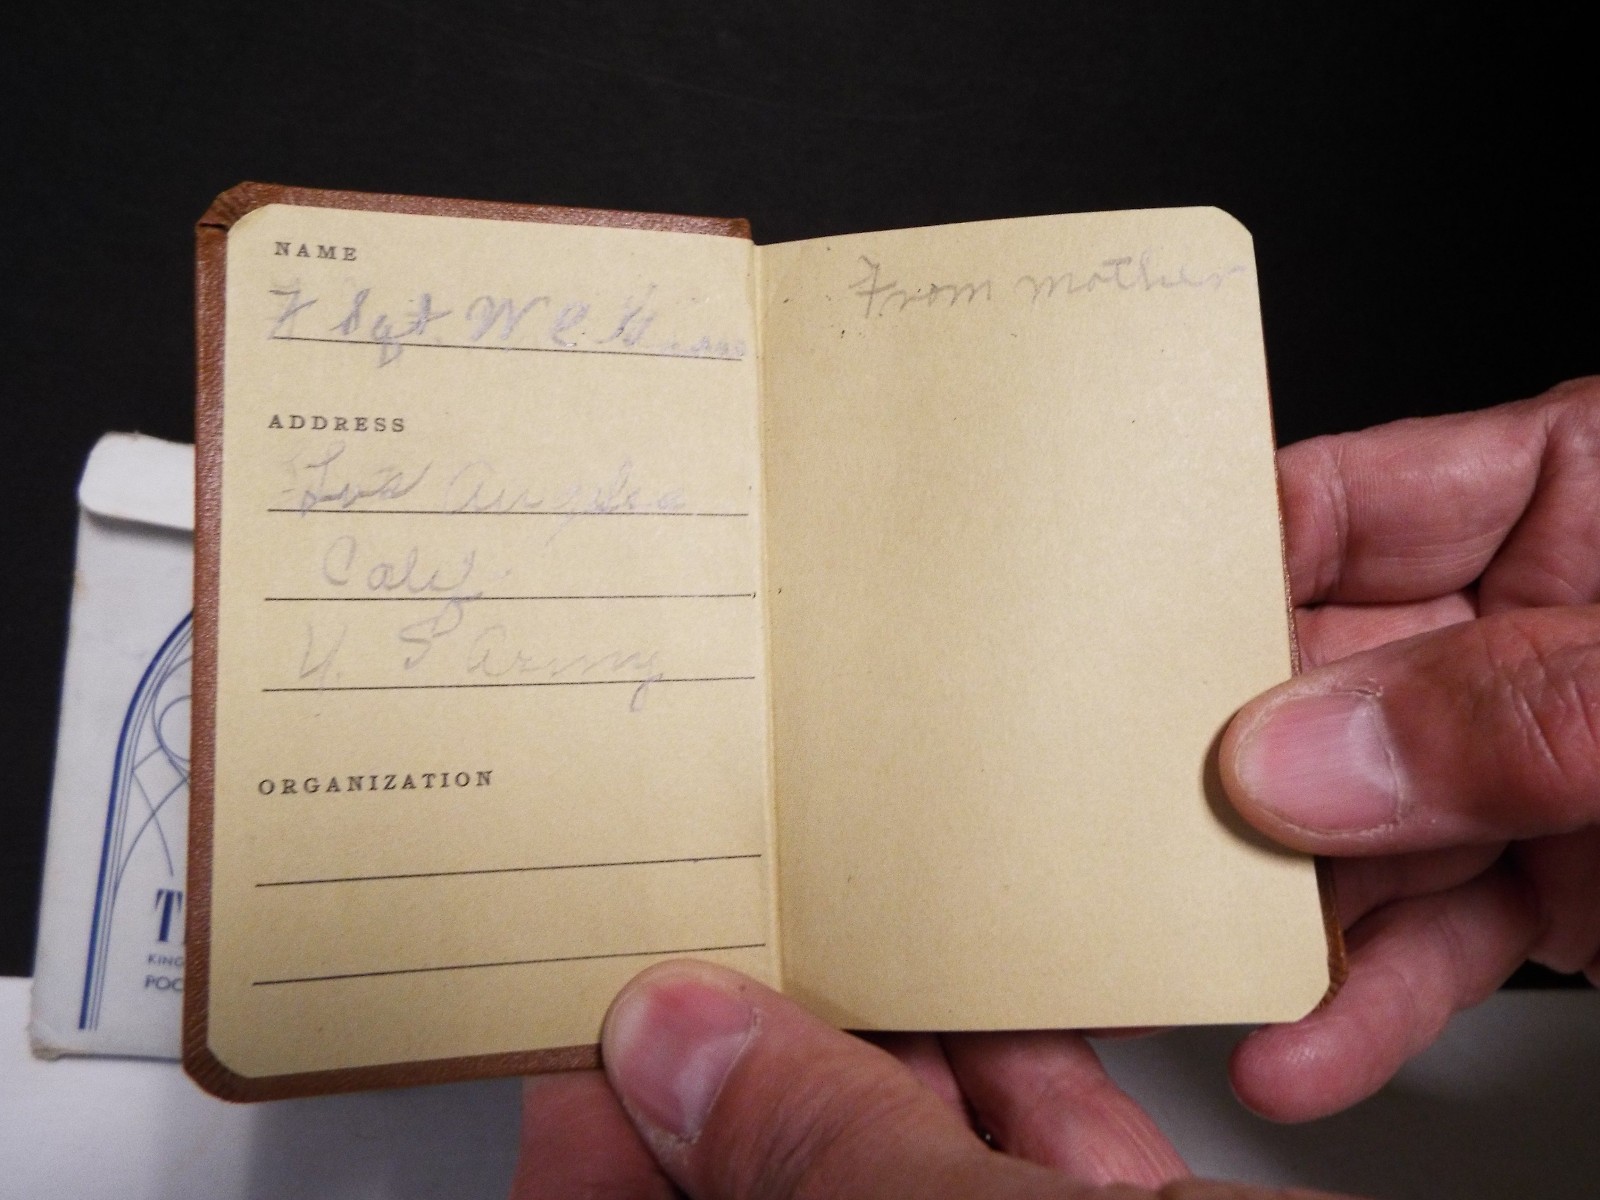 NAME
F Sgt. W C
ADDRESS
Los Angeles
Calif.
U. S Army
ORGANIZATION
From mother